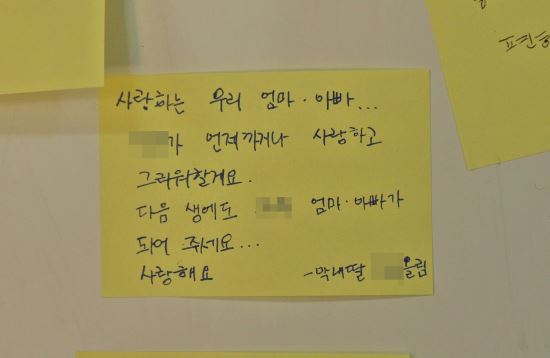 사랑하는 우리 엄마·아빠...
가 언제까지나 사랑하고
그리워할게요.
다음 생에도 엄마·아빠가
되어 주세요...
사랑해요 -막내딸 올림